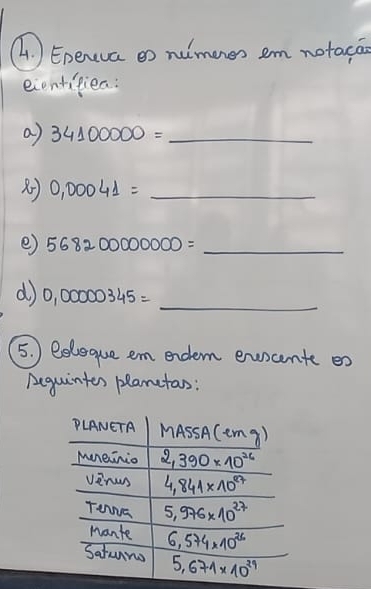 4. Escreva os números em notação
científica:
a) 34100000 =
b) 0,00041 =
c) 568200000000 =
d) 0,00000345 =
5. Coloque em ordem crescente os
seguintes planetas:
PLANETA MASSA (em g)
Mercúrio 2,390 x 10²⁶
Vênus 4,841 x 10²⁷
Terra 5,976 x 10²⁷
Marte 6,574 x 10²⁶
Saturno 5,671 x 10²⁹